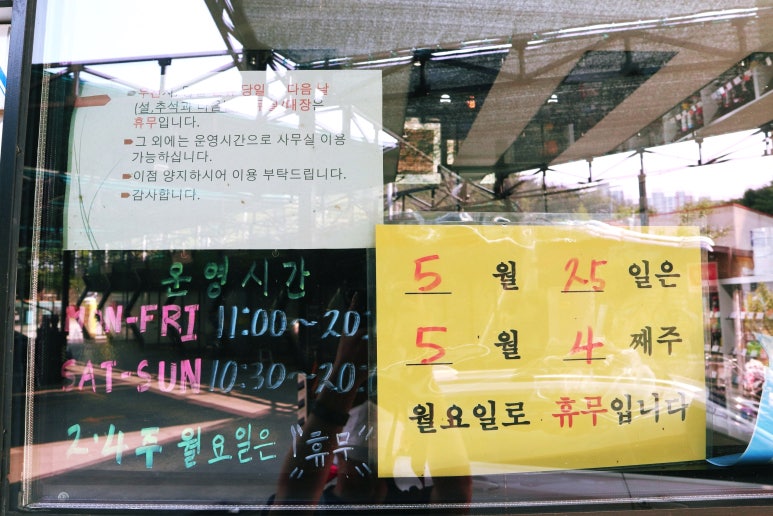 당일 다음 날
(설,추석과
휴무입니다.
그 외에는 운영시간으로 사무실 이용
가능하십니다.
이점 양지하시어 이용 부탁드립니다.
감사합니다.
운영시간
MON-FRI 11:00~20:
SAT-SUN 10:30~20:
2.4주 월요일은 "휴무"
5 월 25 일은
5 월 4 째주
월요일로 휴무입니다